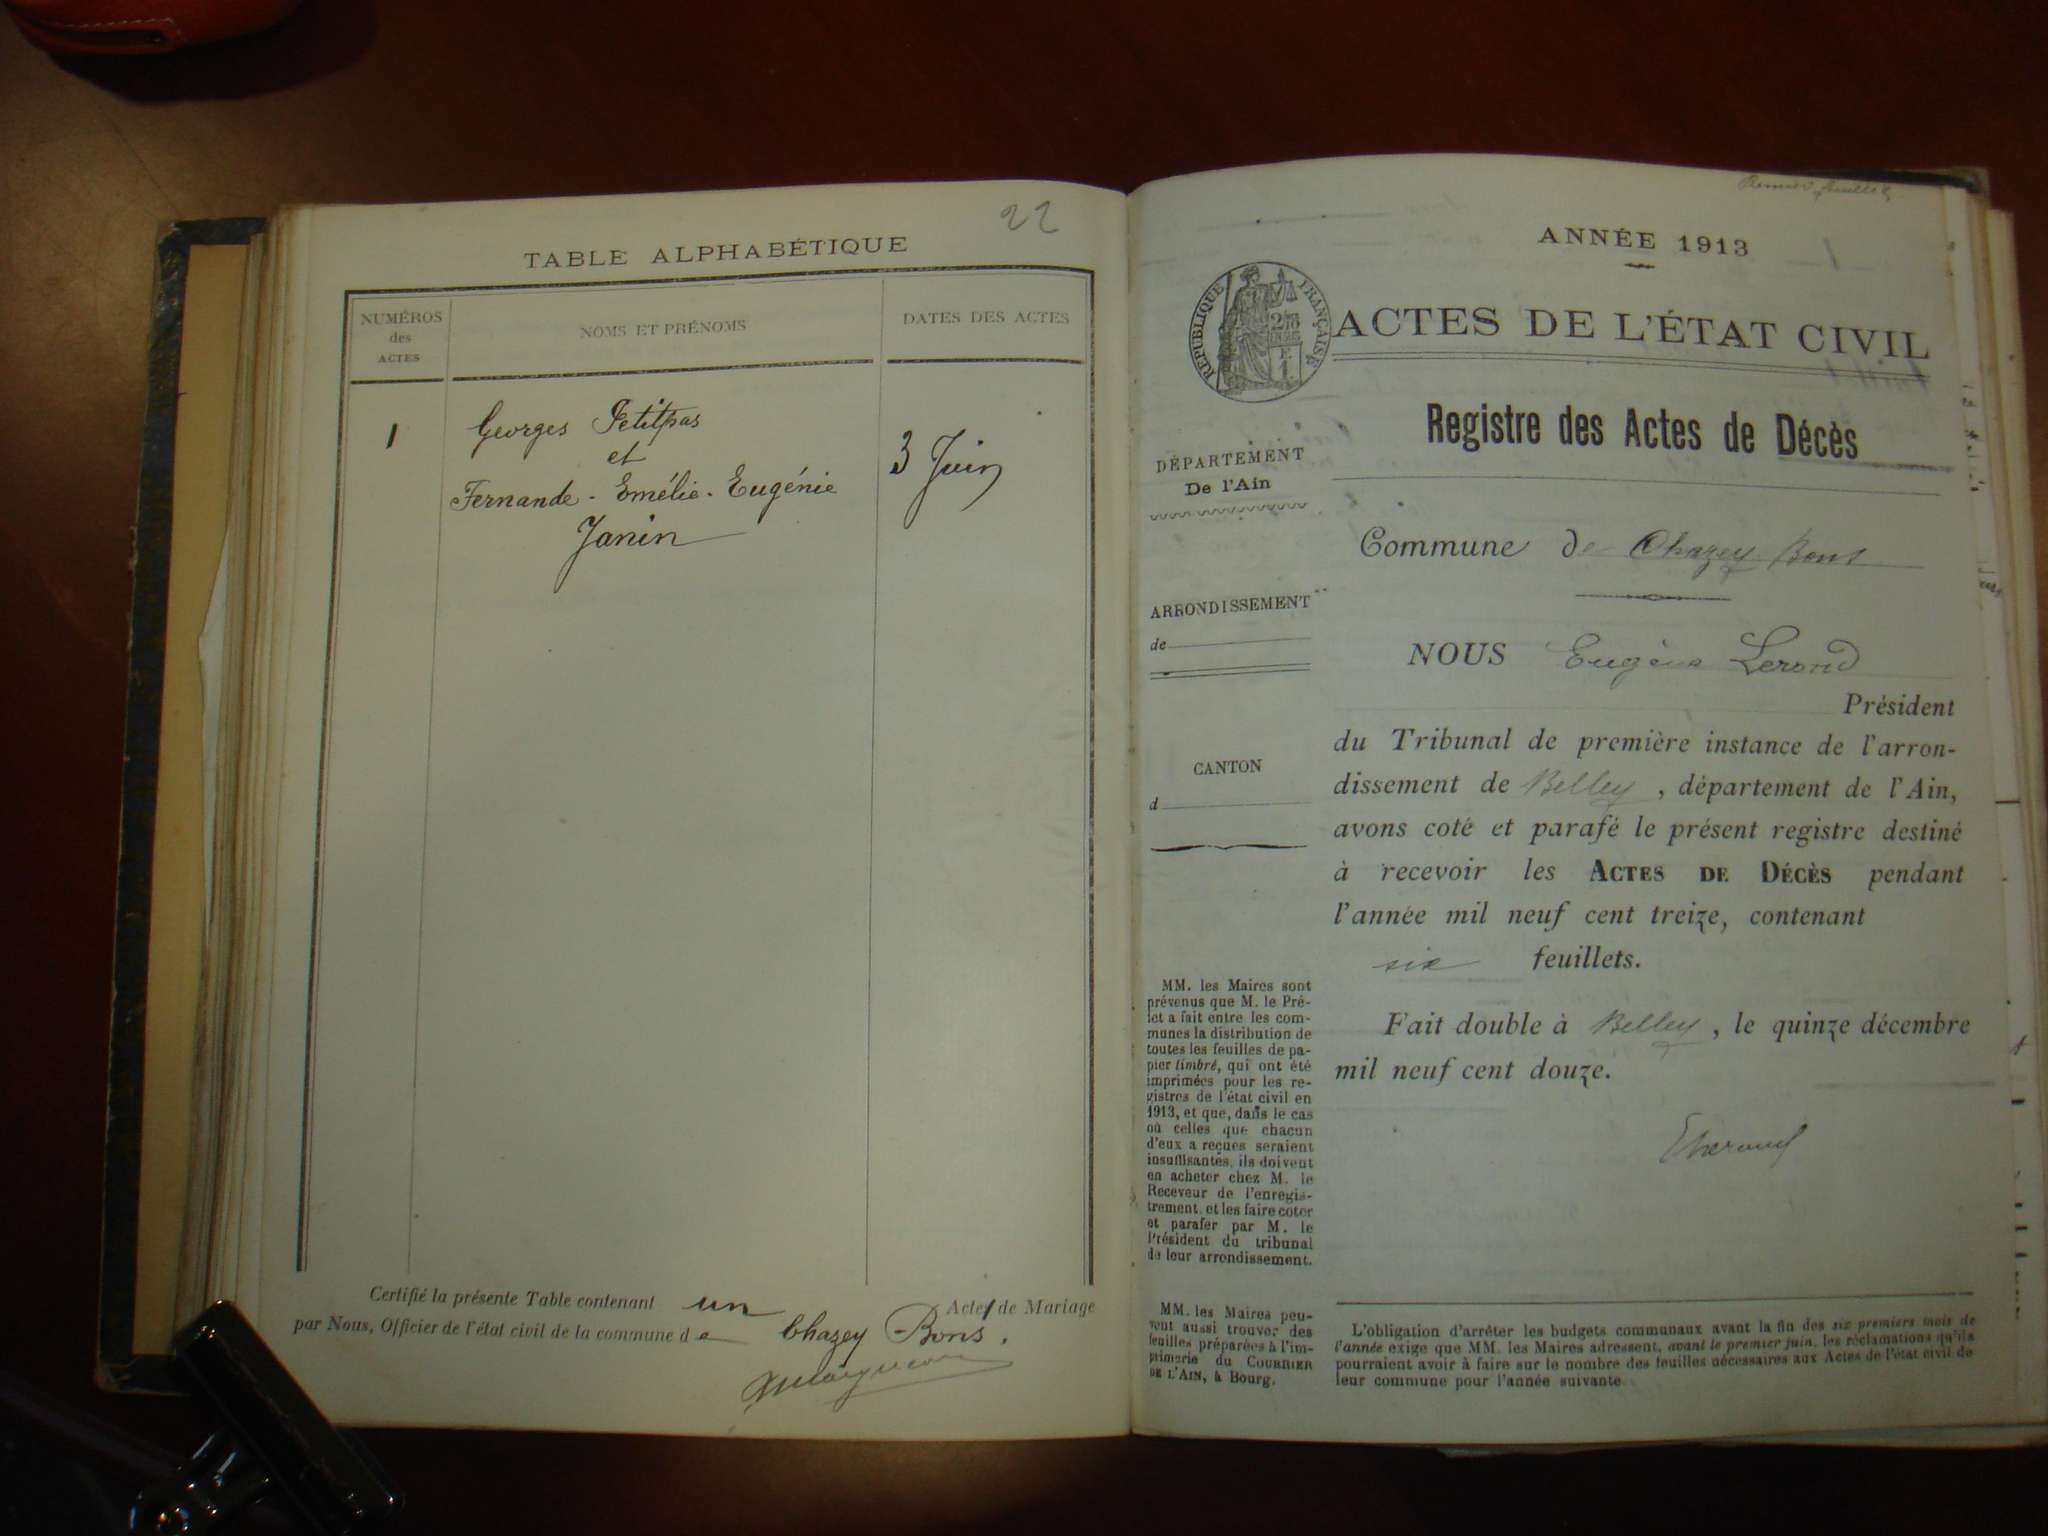 22
TABLE ALPHABÉTIQUE
NUMÉROS
des
ACTES
NOMS ET PRÉNOMS
DATES DES ACTES
1
Georges Petitpas
et
Fernande - Emélie - Eugénie
Janin
3 Juin
Certifié la présente Table contenant un Acte de Mariage
par Nous, Officier de l'état civil de la commune de Chazey Bons.
Premier feuillet
ANNÉE 1913
RÉPUBLIQUE FRANÇAISE
ACTES DE L'ÉTAT CIVIL
Registre des Actes de Décès
DÉPARTEMENT
De l'Ain
Commune de Chazey Bons
ARRONDISSEMENT
de
NOUS Eugène Lerond
Président
du Tribunal de première instance de l'arron-
dissement de Belley, département de l'Ain,
avons coté et parafé le présent registre destiné
à recevoir les ACTES DE DÉCÈS pendant
l'année mil neuf cent treize, contenant
six feuillets.
Fait double à Belley, le quinze décembre
mil neuf cent douze.
CANTON
d
MM. les Maires sont
prévenus que M. le Pré-
fet a fait entre les com-
munes la distribution de
toutes les feuilles de pa-
pier timbré, qui ont été
imprimées pour les re-
gistres de l'état civil en
1913, et que, dans le cas
où celles que chacun
d'eux a reçues seraient
insuffisantes, ils doivent
en acheter chez M. le
Receveur de l'enregis-
trement et les faire coter
et parafer par M. le
Président du tribunal
de leur arrondissement.
MM. les Maires peu-
vent aussi trouver des
feuilles préparées à l'im-
primerie du COURRIER
DE L'AIN, à Bourg.
L'obligation d'arrêter les budgets communaux avant la fin des six premiers mois de
l'année exige que MM. les Maires adressent, avant le premier juin, les réclamations qu'ils
pourraient avoir à faire sur le nombre des feuilles nécessaires aux Actes de l'état civil de
leur commune pour l'année suivante.